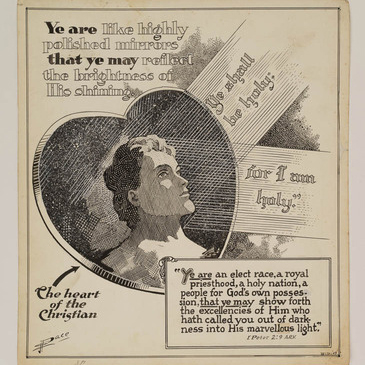 Ye are like highly
polished mirrors
that ye may reflect
the brightness of
His shining.
"Ye shall
be holy:
for I am
holy."
The heart
of the
Christian
Pace
"Ye are an elect race, a royal
priesthood, a holy nation, a
people for God's own posses-
sion, that ye may show forth
the excellencies of Him who
hath called you out of dark-
ness into His marvellous light."
I Peter 2:9 ARV